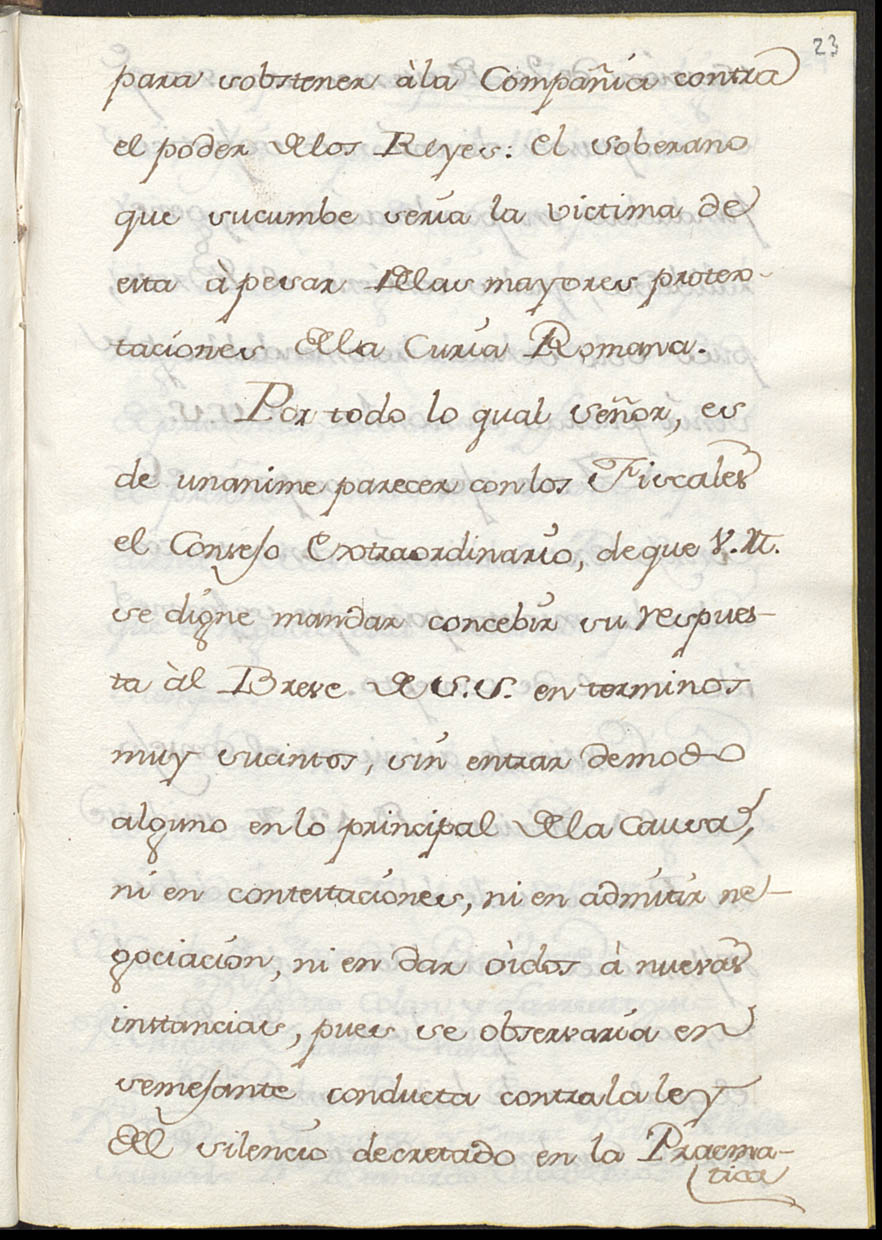 23
para sobstener à la Compañia contra
el poder de los Reyes: el soberano
que sucumbe seria la victima de
esta à pesar de las mayores protes-
taciones de la Curia Romana.
Por todo lo qual señor, es
de unanime parecer con los Fiscales
el Consejo Extraordinario, de que V. M.
se digne mandar concebir su respues-
ta àl Breve de S. S. en terminos
muy sucintos, sin entrar de modo
alguno en lo principal de la causa,
ni en contestaciones, ni en admitir ne-
gociacion, ni en dar oìdos à nuevas
instancias, pues se observaria en
semejante conducta contra la ley
del silencio decretado en la Pragma-
tica